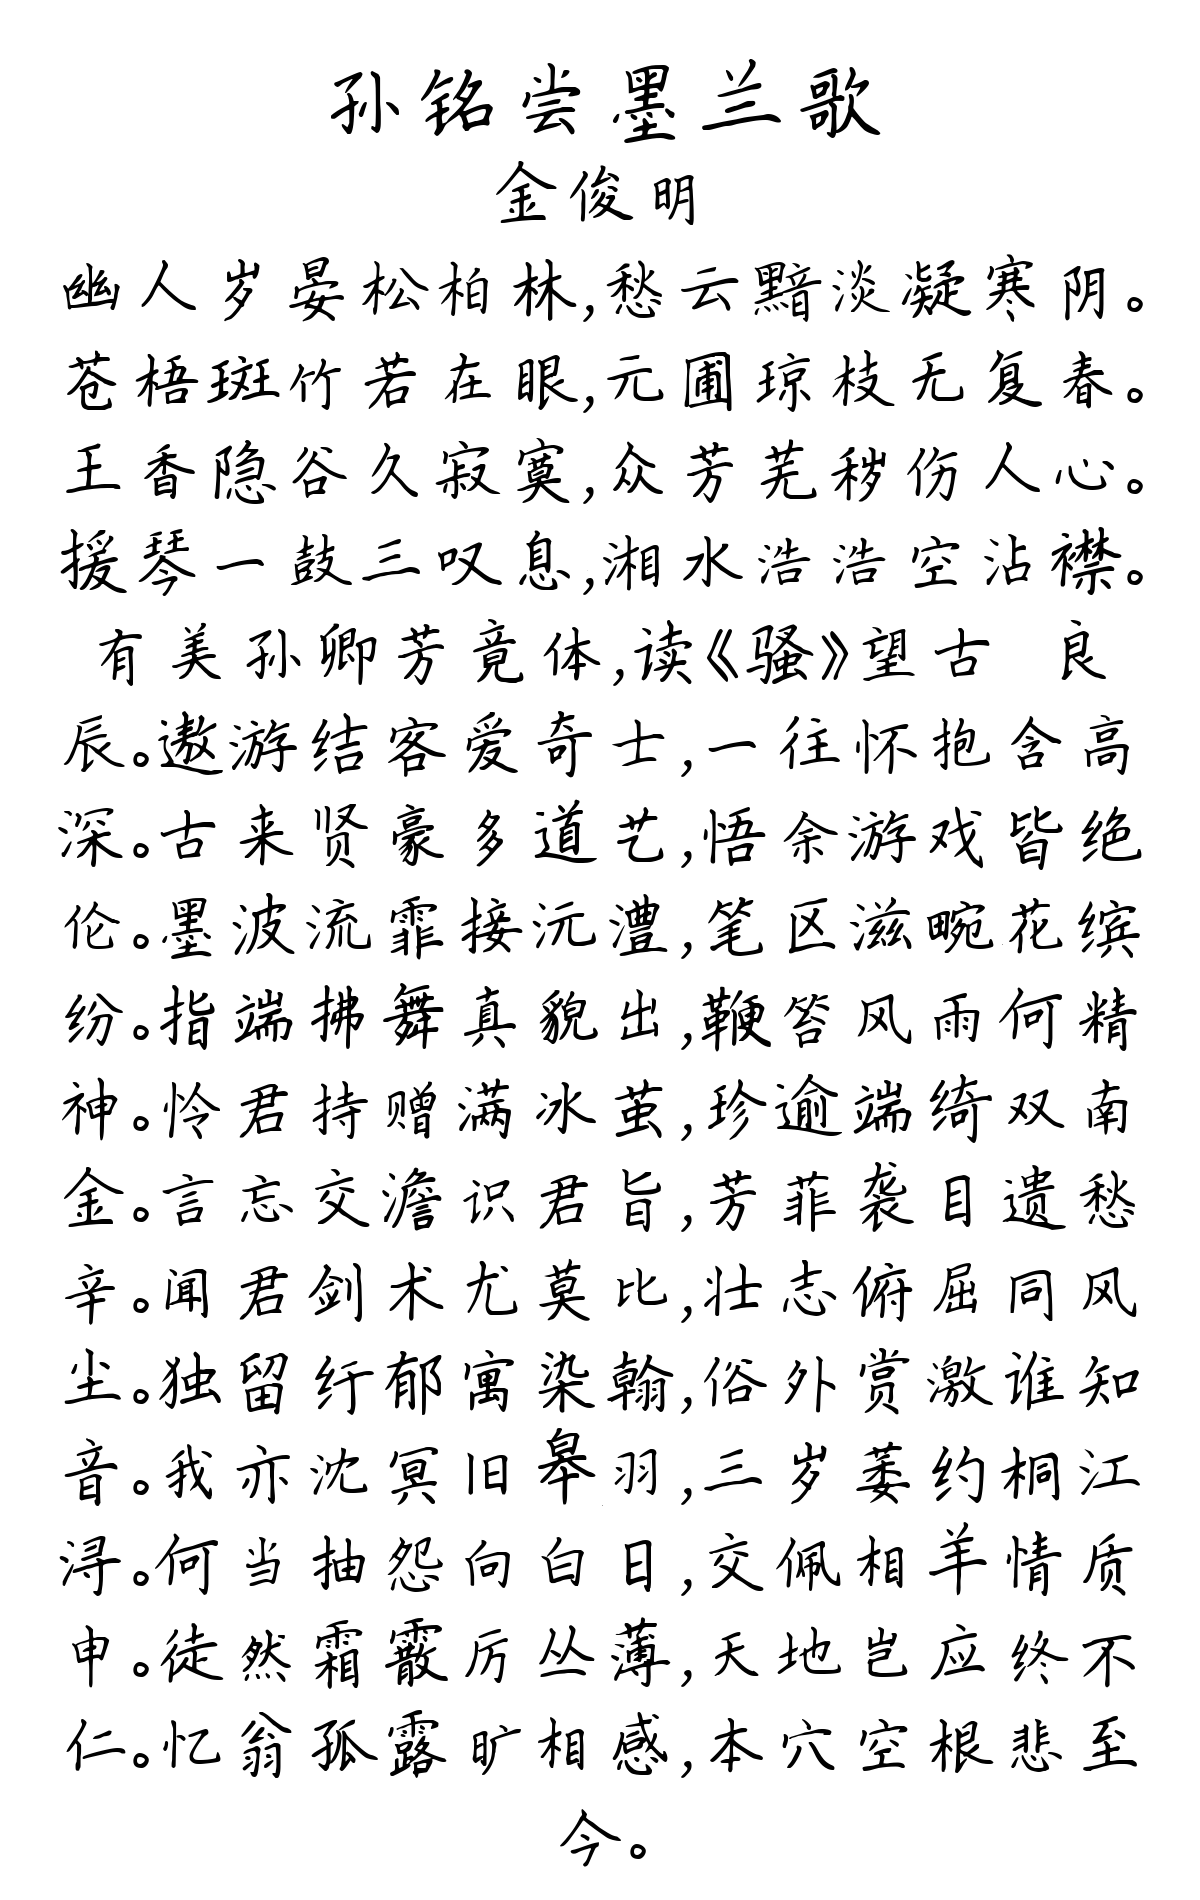 孙铭尝墨兰歌
金俊明
幽人岁晏松柏林,愁云黯淡凝寒阴。
苍梧斑竹若在眼,元圃琼枝无复春。
王香隐谷久寂寞,众芳芜秽伤人心。
援琴一鼓三叹息,湘水浩浩空沾襟。
有美孙卿芳竟体,读《骚》望古 良
辰。遨游结客爱奇士,一往怀抱含高
深。古来贤豪多道艺,悟余游戏皆绝
伦。墨波流霏接沅澧,笔区滋畹花缤
纷。指端拂舞真貌出,鞭笞风雨何精
神。怜君持赠满冰茧,珍逾端绮双南
金。言忘交澹识君旨,芳菲袭目遗愁
辛。闻君剑术尤莫比,壮志俯屈同风
尘。独留纡郁寓染翰,俗外赏激谁知
音。我亦沈冥旧皋羽,三岁蒌约桐江
浔。何当抽怨向白日,交佩相羊情质
申。徒然霜霰厉丛薄,天地岂应终不
仁。忆翁孤露旷相感,本穴空根悲至
今。